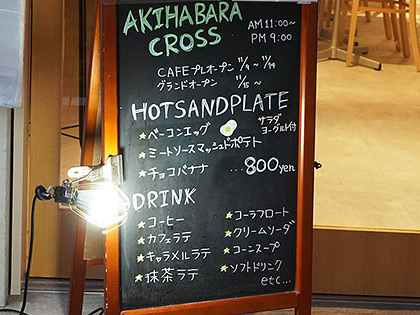 AKIHABARA
CROSS
AM 11:00~
PM 9:00
CAFEプレオープン 11/9 ~ 11/14
グランドオープン 11/15 ~
HOTSANDPLATE
ベーコンエッグ
サラダ
ヨーグルト付
ミートソースマッシュドポテト
チョコバナナ ...800yen
DRINK
コーヒー
カフェラテ
キャラメルラテ
抹茶ラテ
コーラフロート
クリームソーダ
コーンスープ
ソフトドリンク
etc...